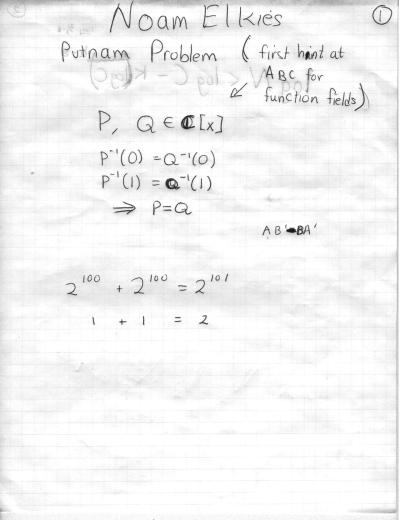 Noam Elkies ①
Putnam Problem (first hint at
ABC for
function fields)
P, Q ∈ ℂ[x]
P⁻¹(0) = Q⁻¹(0)
P⁻¹(1) = Q⁻¹(1)
⇒ P=Q
AB'-BA'
2¹⁰⁰ + 2¹⁰⁰ = 2¹⁰¹
1 + 1 = 2